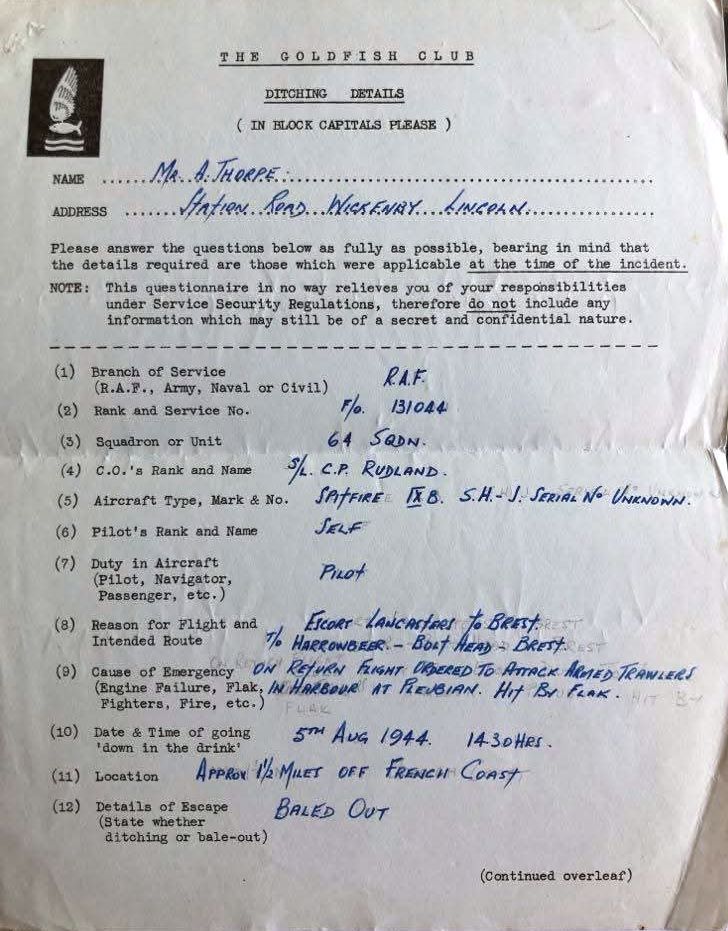 THE GOLDFISH CLUB
DITCHING DETAILS
( IN BLOCK CAPITALS PLEASE )
NAME ...... MR. A. THORPE. ......
ADDRESS ...... STATION ROAD WICKENBY LINCOLN ......
Please answer the questions below as fully as possible, bearing in mind that
the details required are those which were applicable at the time of the incident.
NOTE: This questionnaire in no way relieves you of your responsibilities
under Service Security Regulations, therefore do not include any
information which may still be of a secret and confidential nature.
(1) Branch of Service R.A.F.
(R.A.F., Army, Naval or Civil)
(2) Rank and Service No. F/O. 131044
(3) Squadron or Unit 64 SQDN.
(4) C.O.'s Rank and Name S/L. C.P. RUDLAND.
(5) Aircraft Type, Mark & No. SPITFIRE IX B. S.H-J. SERIAL No UNKNOWN.
(6) Pilot's Rank and Name SELF
(7) Duty in Aircraft PILOT
(Pilot, Navigator,
Passenger, etc.)
(8) Reason for Flight and ESCORT LANCASTERS TO BREST.
Intended Route T/O HARROWBEER - BOLT HEAD - BREST.
(9) Cause of Emergency ON RETURN FLIGHT ORDERED TO ATTACK ARMED TRAWLERS
(Engine Failure, Flak, IN HARBOUR AT PLEUBIAN. HIT BY FLAK.
Fighters, Fire, etc.)
(10) Date & Time of going 5TH AUG 1944. 1430 HRS.
'down in the drink'
(11) Location APPROX 1½ MILES OFF FRENCH COAST
(12) Details of Escape BALED OUT
(State whether
ditching or bale-out)
(Continued overleaf)